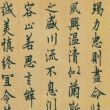 竭力忠則盡命
夙興溫凊似蘭斯
之盛川流不息
容止若思言辭
誠美慎終宜令